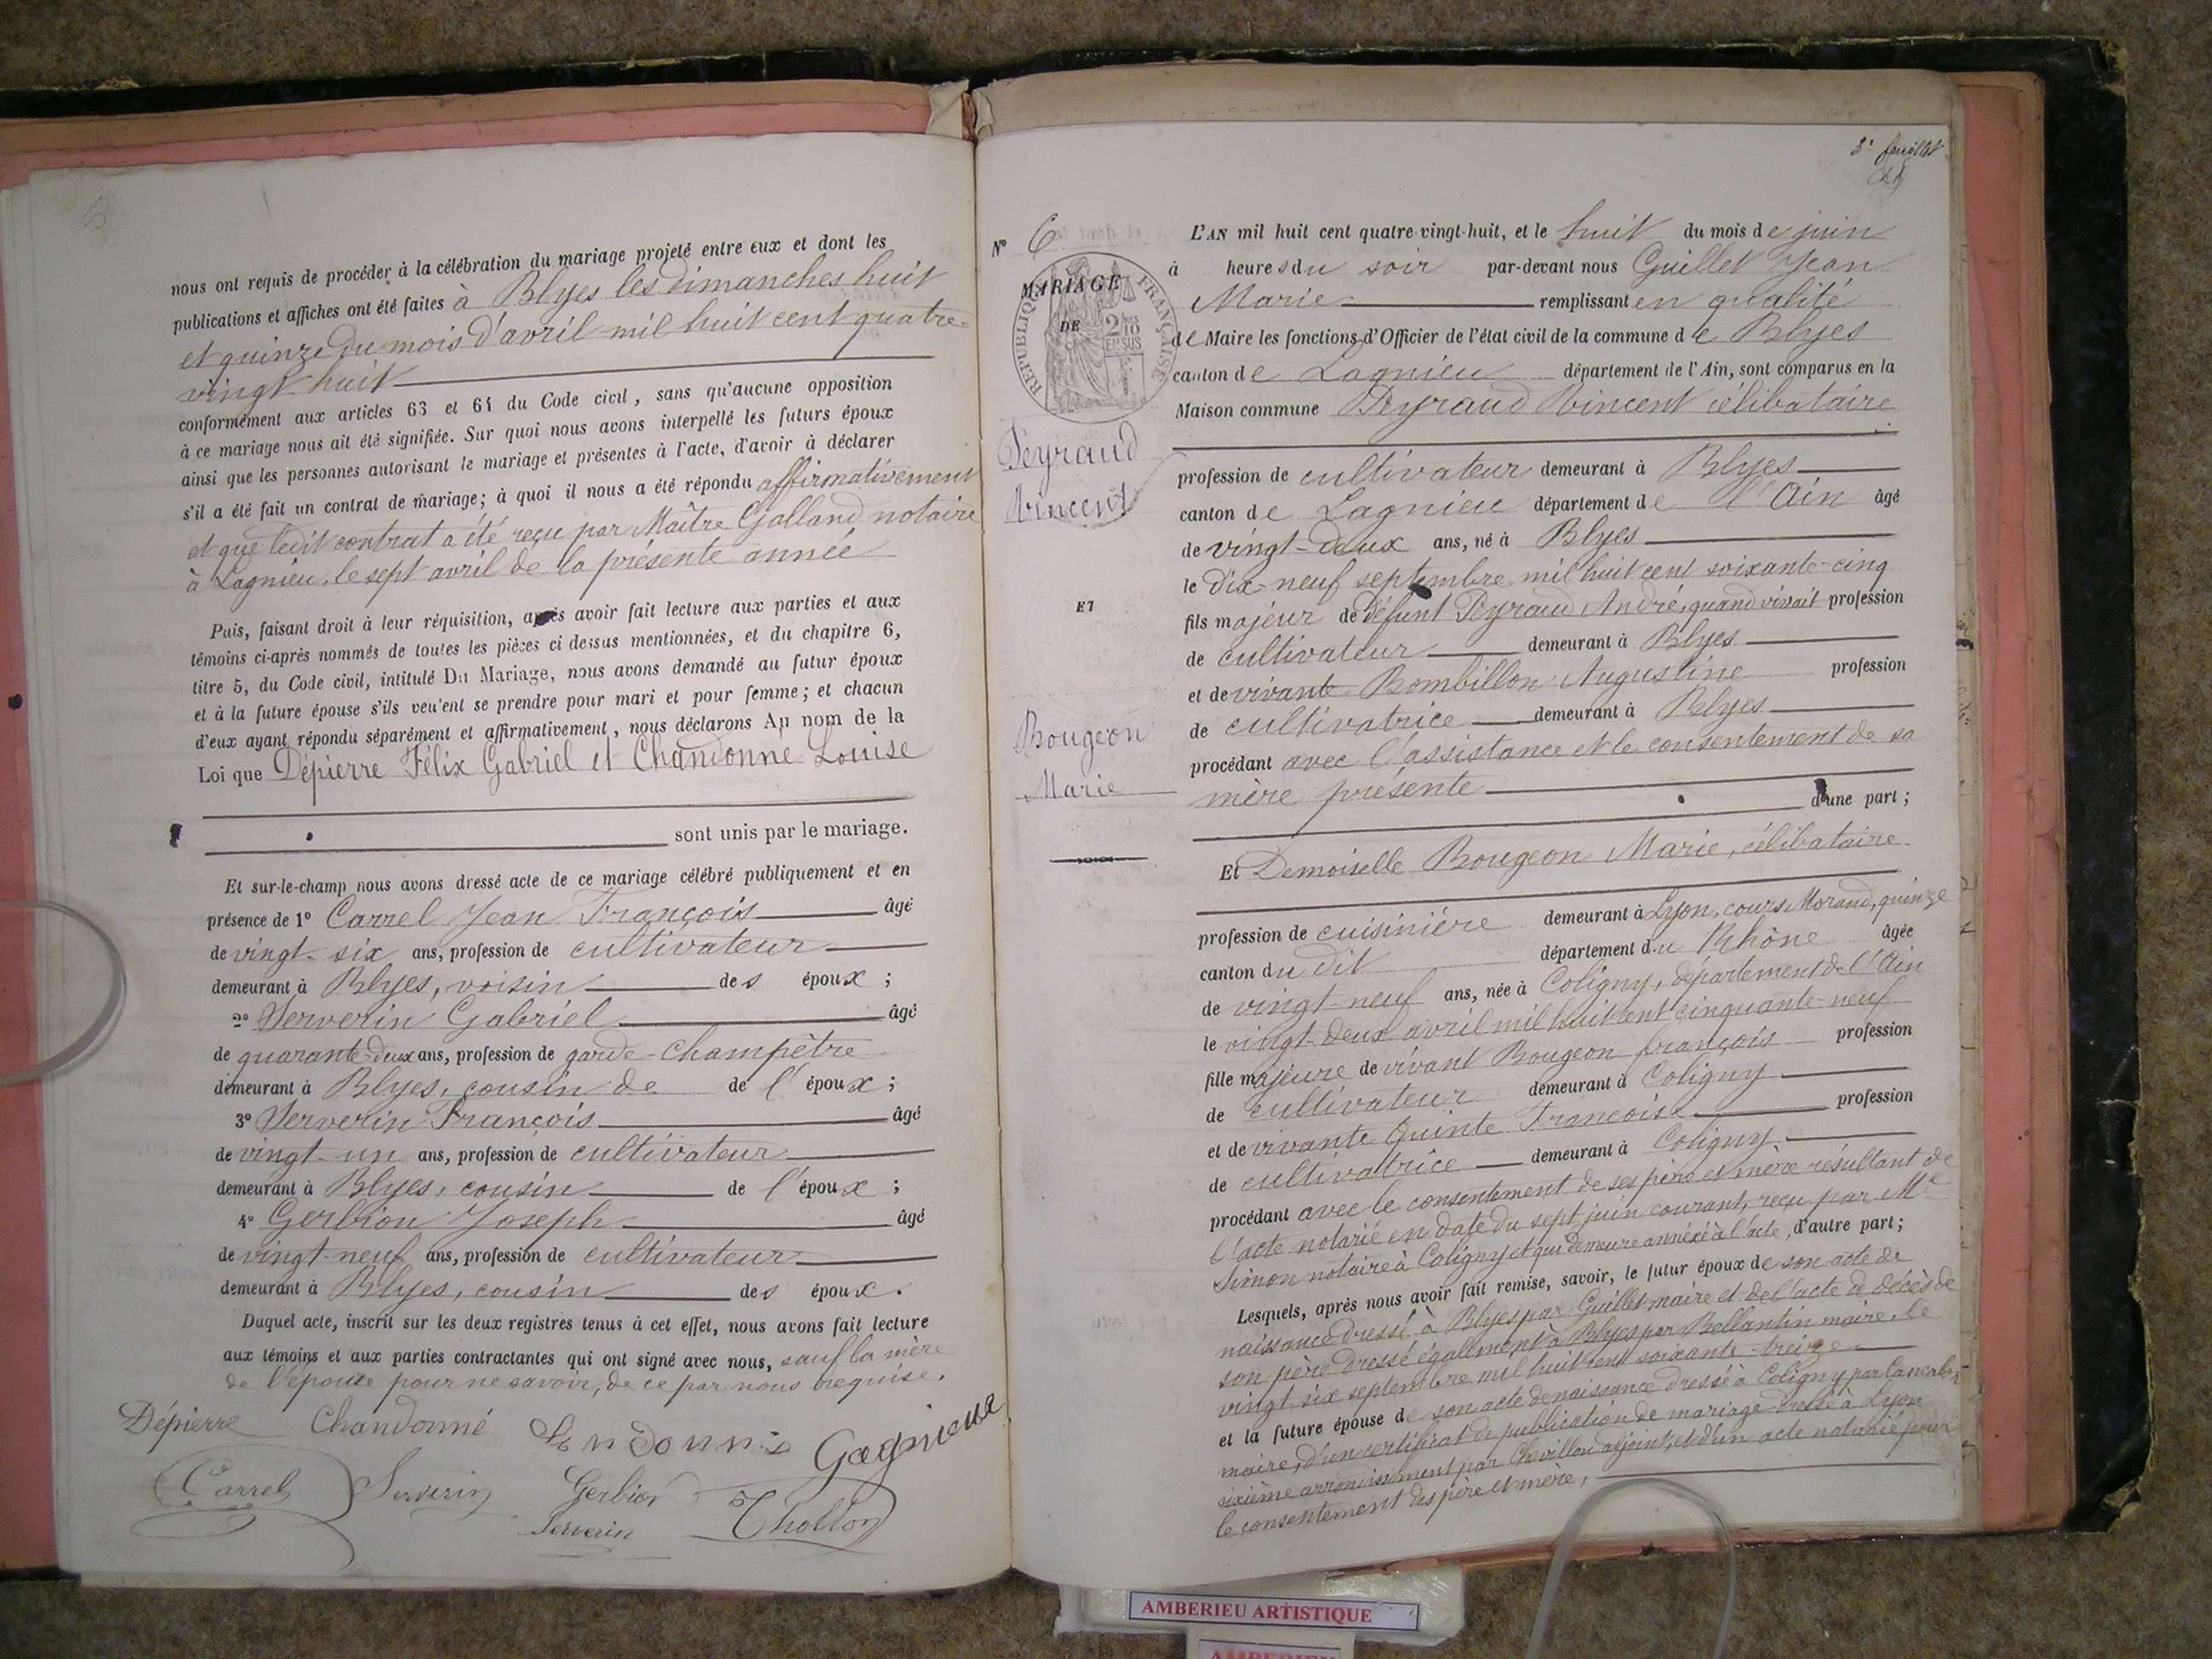 nous ont requis de procéder à la célébration du mariage projeté entre eux et dont les
publications et affiches ont été faites à Blyes les dimanches huit
et quinze du mois d'avril mil huit cent quatre-
vingt huit
conformément aux articles 63 et 64 du Code civil, sans qu'aucune opposition
à ce mariage nous ait été signifiée. Sur quoi nous avons interpellé les futurs époux
ainsi que les personnes autorisant le mariage et présentes à l'acte, d'avoir à déclarer
s'il a été fait un contrat de mariage; à quoi il nous a été répondu affirmativement
et que ledit contrat a été reçu par Maître Galland notaire
à Lagnieu, le sept avril de la présente année
Puis, faisant droit à leur réquisition, après avoir fait lecture aux parties et aux
témoins ci-après nommés de toutes les pièces ci dessus mentionnées, et du chapitre 6,
titre 5, du Code civil, intitulé Du Mariage, nous avons demandé au futur époux
et à la future épouse s'ils veulent se prendre pour mari et pour femme; et chacun
d'eux ayant répondu séparément et affirmativement, nous déclarons Au nom de la
Loi que Dépierre Félix Gabriel et Chandonné Louise
sont unis par le mariage.
Et sur-le-champ nous avons dressé acte de ce mariage célébré publiquement et en
présence de 1° Carrel Jean François âgé
de vingt-six ans, profession de cultivateur
demeurant à Blyes, voisin des époux;
2° Serverin Gabriel âgé
de quarante-deux ans, profession de garde-champêtre
demeurant à Blyes, cousin de de l'époux;
3° Serverin François âgé
de vingt-un ans, profession de cultivateur
demeurant à Blyes, cousin de l'époux;
4° Gerbion Joseph âgé
de vingt-neuf ans, profession de cultivateur
demeurant à Blyes, cousin des époux.
Duquel acte, inscrit sur les deux registres tenus à cet effet, nous avons fait lecture
aux témoins et aux parties contractantes qui ont signé avec nous, sauf la mère
de l'épouse pour ne savoir, de ce par nous requise.
Dépierre Chandonné Gagnieue
Carrel Serverin Gerbion Thollon
Serverin
3e feuillet
N° 6
MARIAGE
DE
RÉPUBLIQUE FRANÇAISE
2/10 EN SUS
Peyraud
Vincent
ET
Bougeon
Marie
L'AN mil huit cent quatre-vingt-huit, et le huit du mois de juin
à heures du soir par-devant nous Guillet Jean
Marie remplissant en qualité
de Maire les fonctions d'Officier de l'état civil de la commune de Blyes
canton de Lagnieu département de l'Ain, sont comparus en la
Maison commune Peyraud Vincent célibataire
profession de cultivateur demeurant à Blyes
canton de Lagnieu département de l'Ain âgé
de vingt-deux ans, né à Blyes
le dix-neuf septembre mil huit cent soixante-cinq
fils majeur de défunt Peyraud André, quand vivait profession
de cultivateur demeurant à Blyes
et de vivante Bombillon Augustine profession
de cultivatrice demeurant à Blyes
procédant avec l'assistance et le consentement de sa
mère présente
d'une part;
Et Demoiselle Bougeon Marie, célibataire
profession de cuisinière demeurant à Lyon, cours Morand, quinze
canton du dit département du Rhône âgée
de vingt-neuf ans, née à Coligny, département de l'Ain
le vingt-deux avril mil huit cent cinquante-neuf
fille majeure de vivant Bougeon françois profession
de cultivateur demeurant à Coligny
et de vivante Quinte Françoise profession
de cultivatrice demeurant à Coligny
procédant avec le consentement de ses père et mère résultant de
l'acte notarié en date du sept juin courant, reçu par Me
Simon notaire à Coligny et qui demeure annéxé à l'acte, d'autre part;
Lesquels, après nous avoir fait remise, savoir, le futur époux de son acte de
naissance dressé à Blyes par Guillet maire et de l'acte de décès de
son père dressé également à Blyes par Bellantin maire, le
vingt-six septembre mil huit cent soixante-treize
et la future épouse de son acte de naissance dressé à Coligny par
maire, d'un certificat de publication de mariage dressé à Lyon
sixième arrondissement par Chevillon adjoint, et d'un acte notarié pour
le consentement des père et mère,
AMBERIEU ARTISTIQUE
AMBERIEU